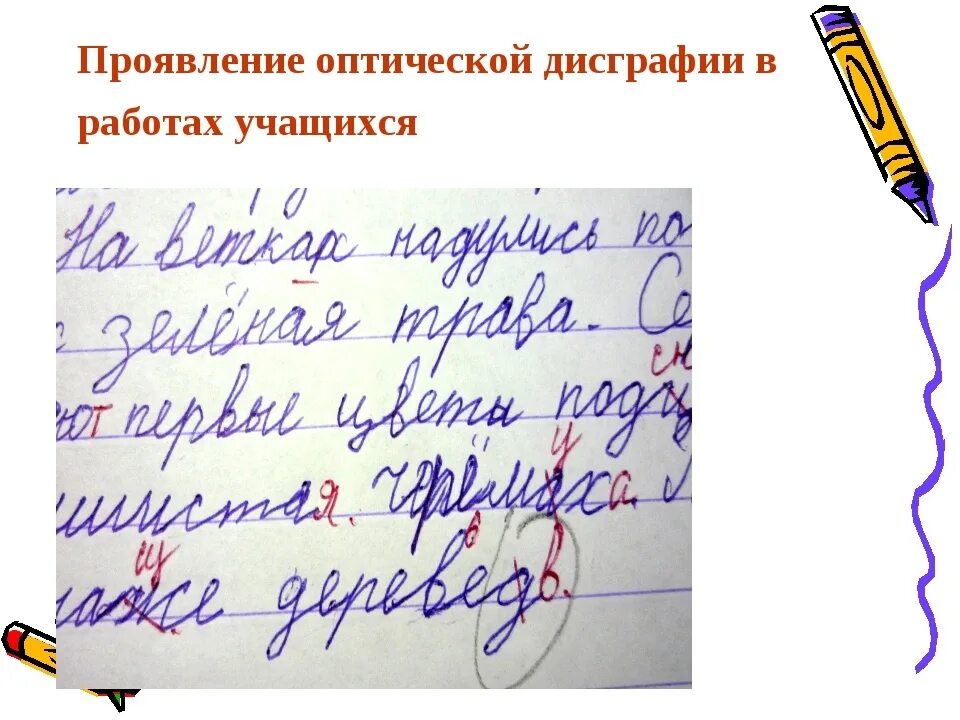 Проявление оптической дисграфии в
работах учащихся
На ветках надулись по
зелёная трава. Се
ют первые цветы под
шистая. черёмуха.
деревед в.